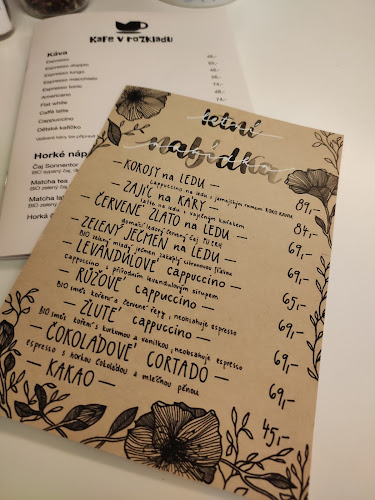 Kafe v rozkladu
Káva
Espresso
Espresso doppio
Espresso lungo
Espresso macchiato
Espresso tonic
Americano
Flat white
Caffè latte
Cappuccino
Dětské kafíčko
Horké náp
Čaj Sonnentor
Matcha tea
Matcha la
Horká č
letní
nabídka
— KOKOSY na LEDU — 89,-
cappuccino na ledu s jamajským rumem KOKO KANU
— ZAJÍC na KÁRY — 84,-
latte na ledu s vaječným koňakem
— ČERVENÉ ZLATO na LEDU — 69,-
domácí ledový červený čaj
— ZELENÝ JEČMEN na LEDU — 69,-
BIO zelený mladý ječmen zakáplý citronovou šťávou
— LEVANDULOVÉ cappuccino — 65,-
cappuccino s přírodním levandulovým sirupem
— RŮŽOVÉ cappuccino — 69,-
BIO směs koření a červené řepy, neobsahuje espresso
— ŽLUTÉ cappuccino — 69,-
BIO směs koření s kurkumou a vanilkou, neobsahuje espresso
— ČOKOLÁDOVÉ CORTADO — 69,-
espresso s horkou čokoládou a mléčnou pěnou
— KAKAO — 45,-